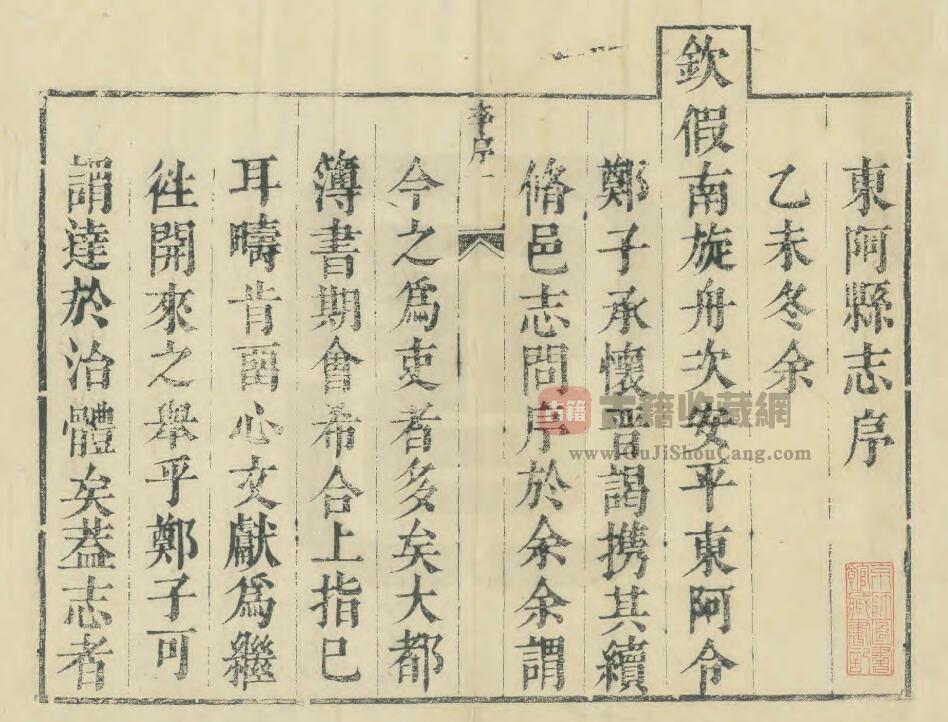 東阿縣志序
乙未冬余
欽假南旋舟次安平東阿令
鄭子承懷晋謁携其續
脩邑志問序於余余謂
李序一
今之爲吏者多矣大都
簿書期會希合上指已
耳疇肯畱心文獻爲繼
徃開來之舉乎鄭子可
謂達於治體矣葢志者
古籍
古籍收藏網
www.GuJiShouCang.com